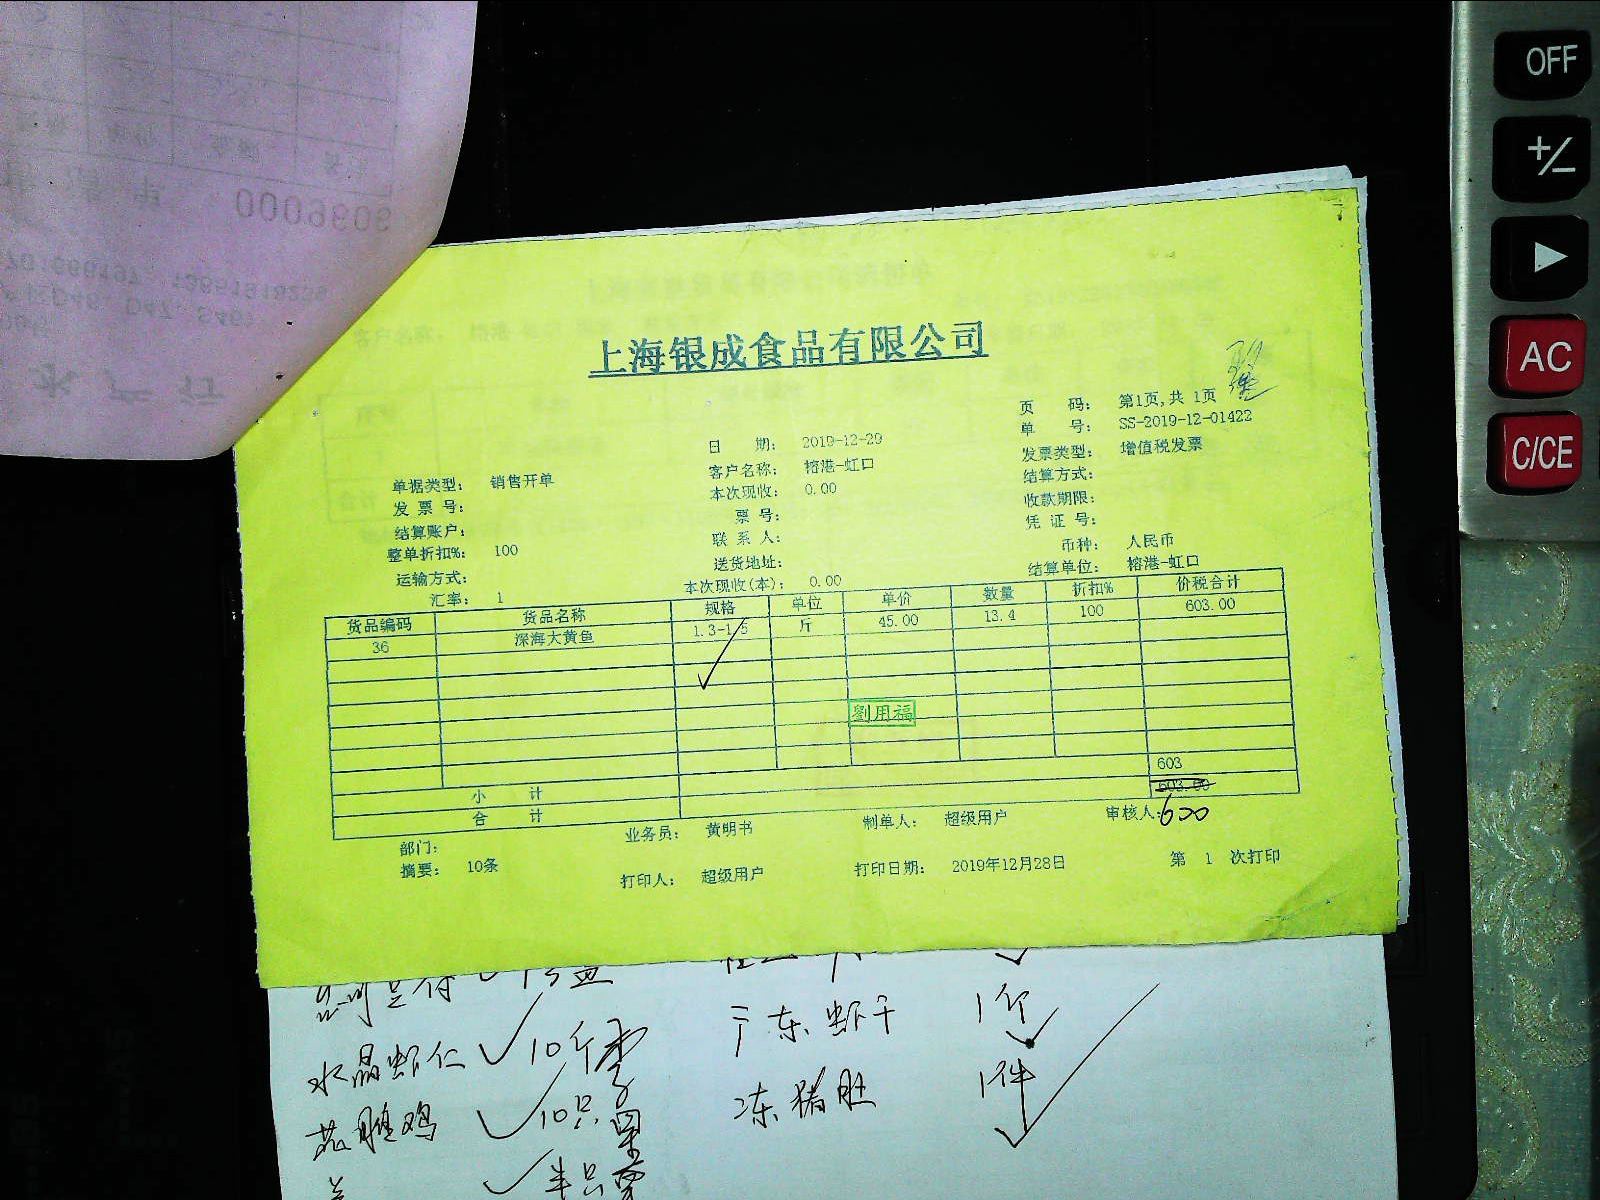 OFF
+/−
▶
AC
C/CE
0009606
上海银成食品有限公司
页 码: 第1页,共 1页
单 号: SS-2019-12-01422
日 期: 2019-12-29
发票类型: 增值税发票
客户名称: 榕港-虹口
结算方式:
单据类型: 销售开单
本次现收: 0.00
收款期限:
发 票 号:
票 号:
凭 证 号:
结算账户:
联 系 人:
币种: 人民币
整单折扣%: 100
送货地址:
结算单位: 榕港-虹口
运输方式:
本次现收(本): 0.00
汇率: 1
货品编码 货品名称 规格 单位 单价 数量 折扣% 价税合计
36 深海大黄鱼 1.3-1.5 斤 45.00 13.4 100 603.00
劉用福
小 计 603
合 计 603.00
600
部门: 业务员: 黄明书 制单人: 超级用户 审核人:
摘要: 10条 打印人: 超级用户 打印日期: 2019年12月28日 第 1 次打印
水晶虾仁 10斤
10只
半只
广东虾干 1斤
冻猪肚 1件